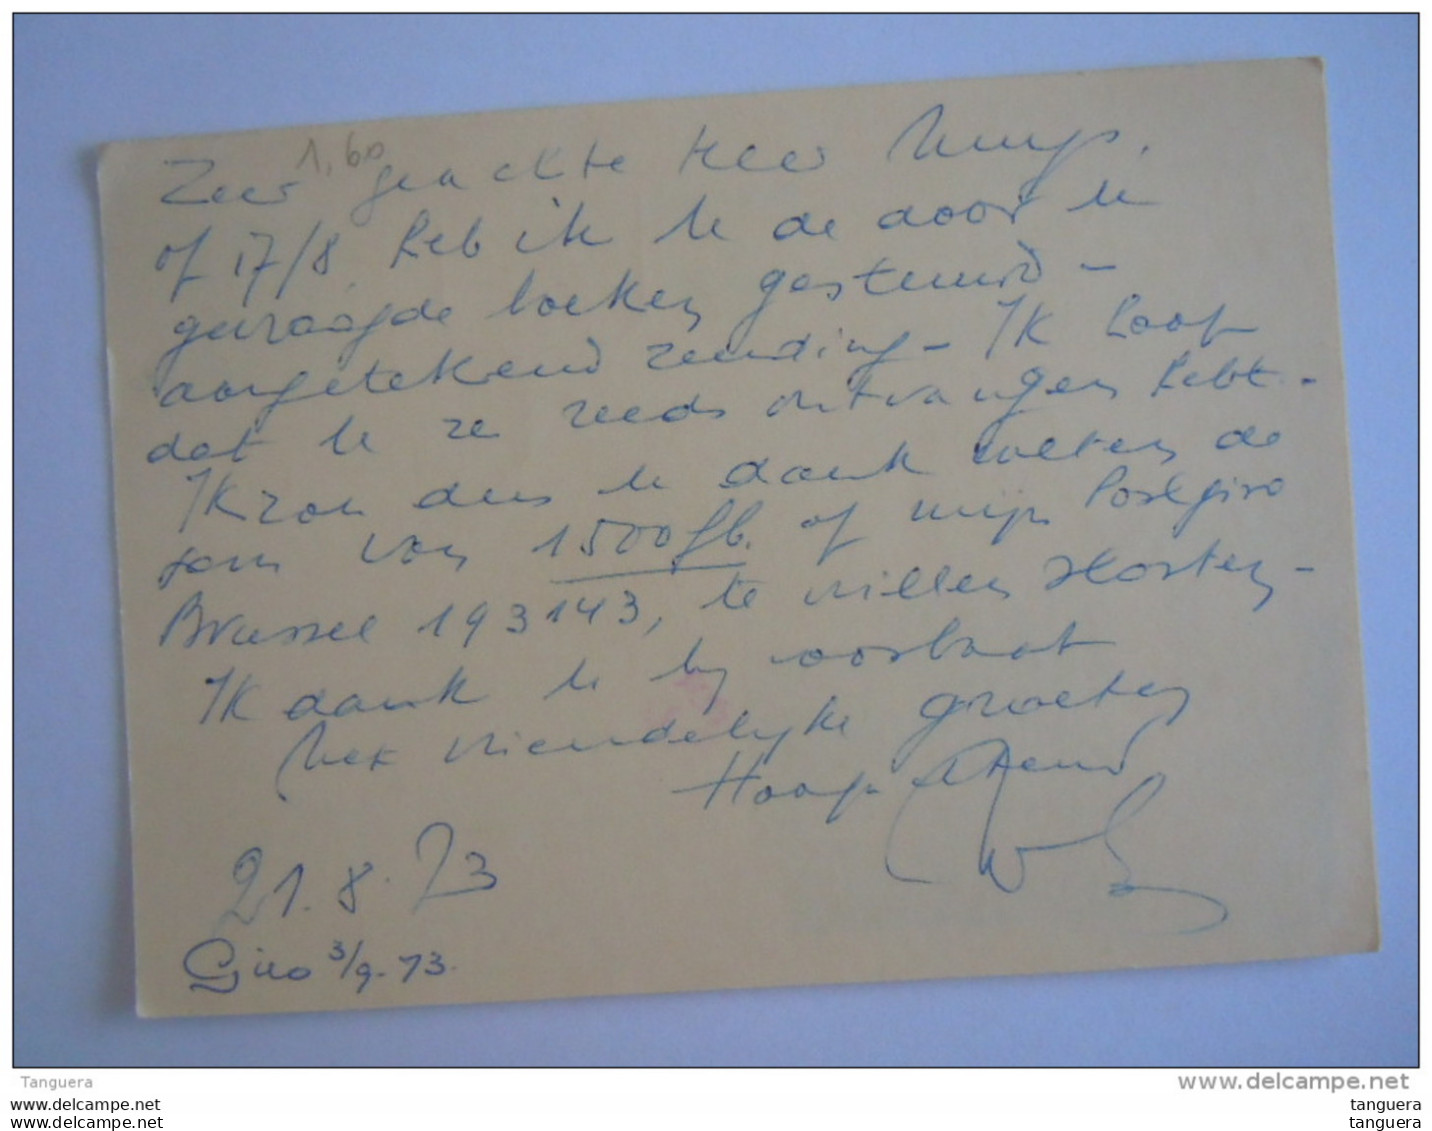 1,60
Zeer geachte Heer
op 17/8 heb ik U de door U
gevraagde boeken gestuurd –
aangetekend zending – Ik hoop
dat U ze reeds ontvangen hebt –
Ik zou dus U dank weten de
som van 1500 fb. op mijn Postgiro
Brussel 193143, te willen storten –
Ik dank U bij voorbaat
Met vriendelijke groeten
Hoogachtend
21.8.73
Giro 3/9-73.
Tanguera
www.delcampe.net
www.delcampe.com
www.delcampe.com
tanguera
tanguera